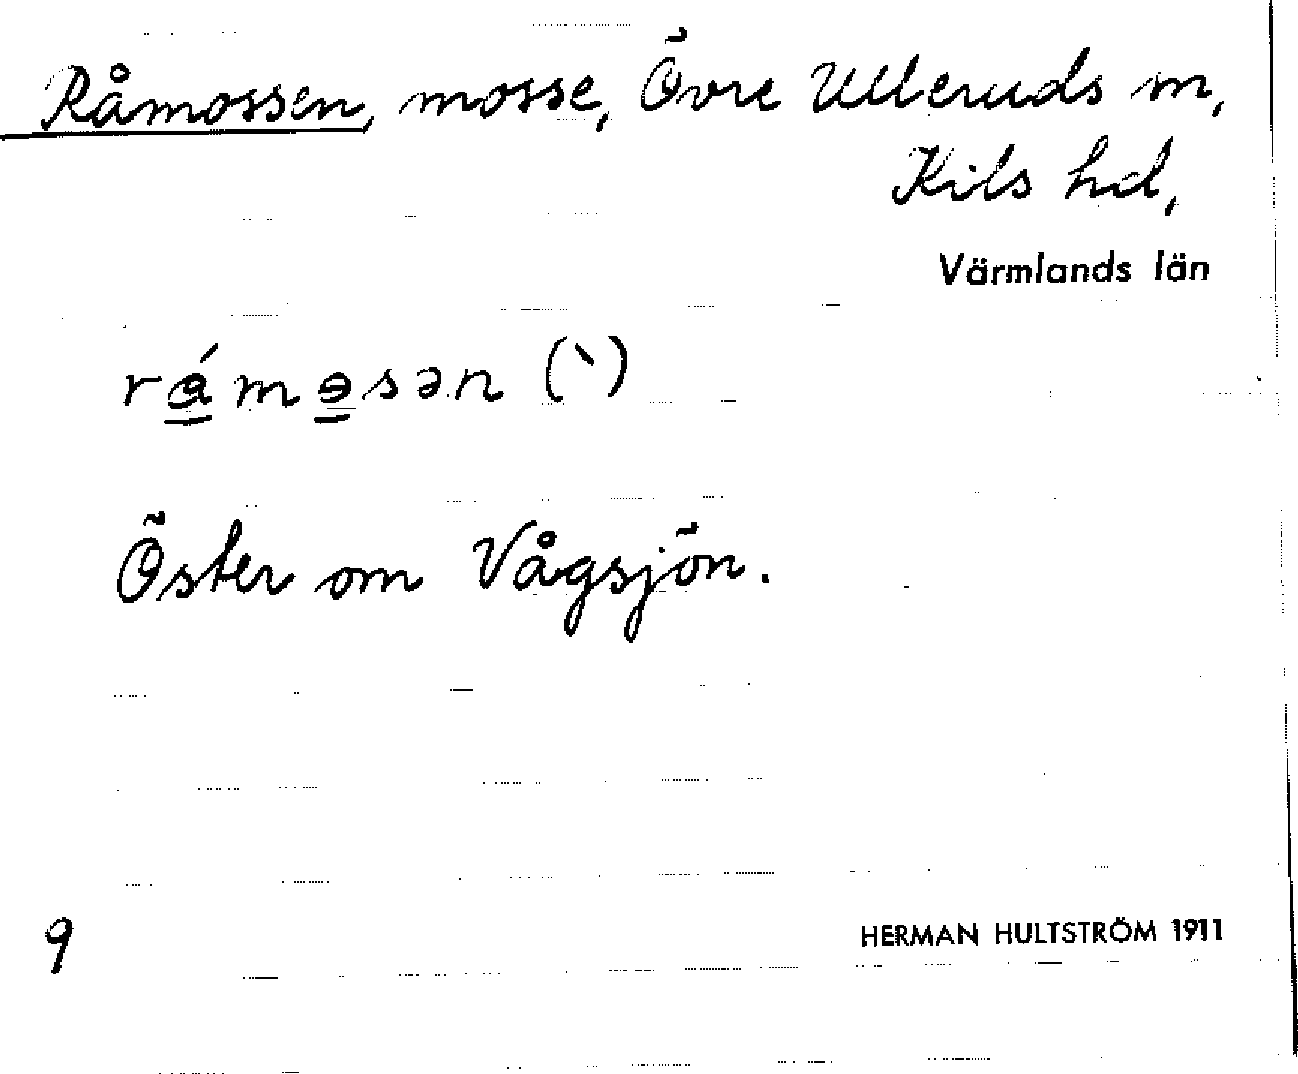 Råmossen, mosse, Övre Ulleruds m,
Kils hd,
Värmlands län
Öster om Vågsjön.
9
HERMAN HULTSTRÖM 1911